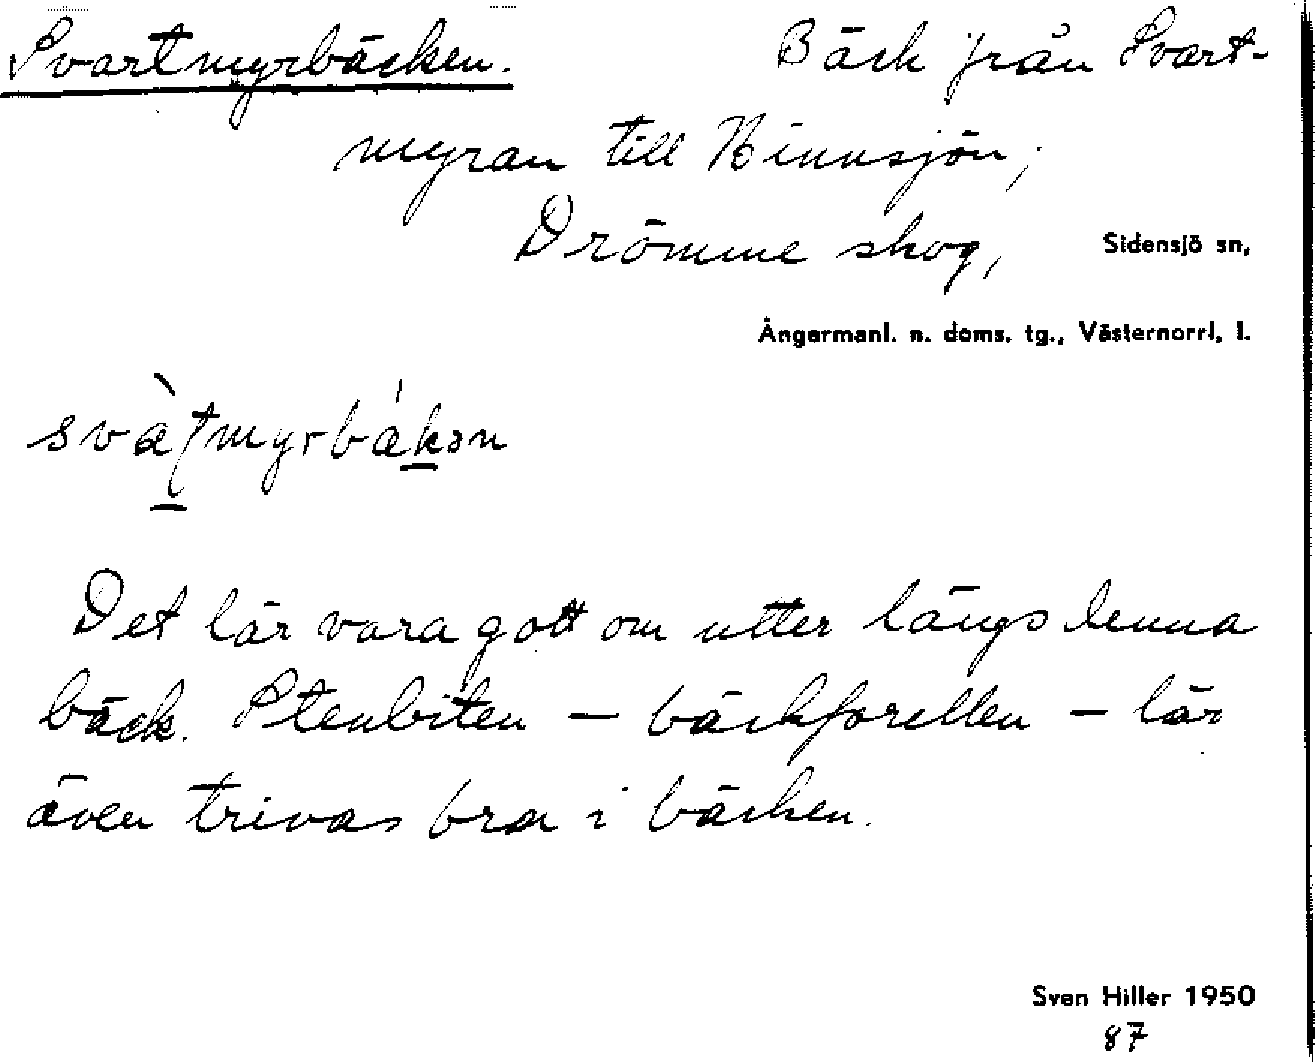 Svartmyrbäcken. Bäck från Svart-
myran till Hinnsjön;
Drömme skog, Sidensjö sn,
Ångermanl. n. doms. tg., Västernorrl. l.
svàʈmyrbákən
Det lär vara gott om utter längs denna
bäck. Stenbiten – bäckforellen – lär
även trivas bra i bäcken.
Sven Hiller 1950
87